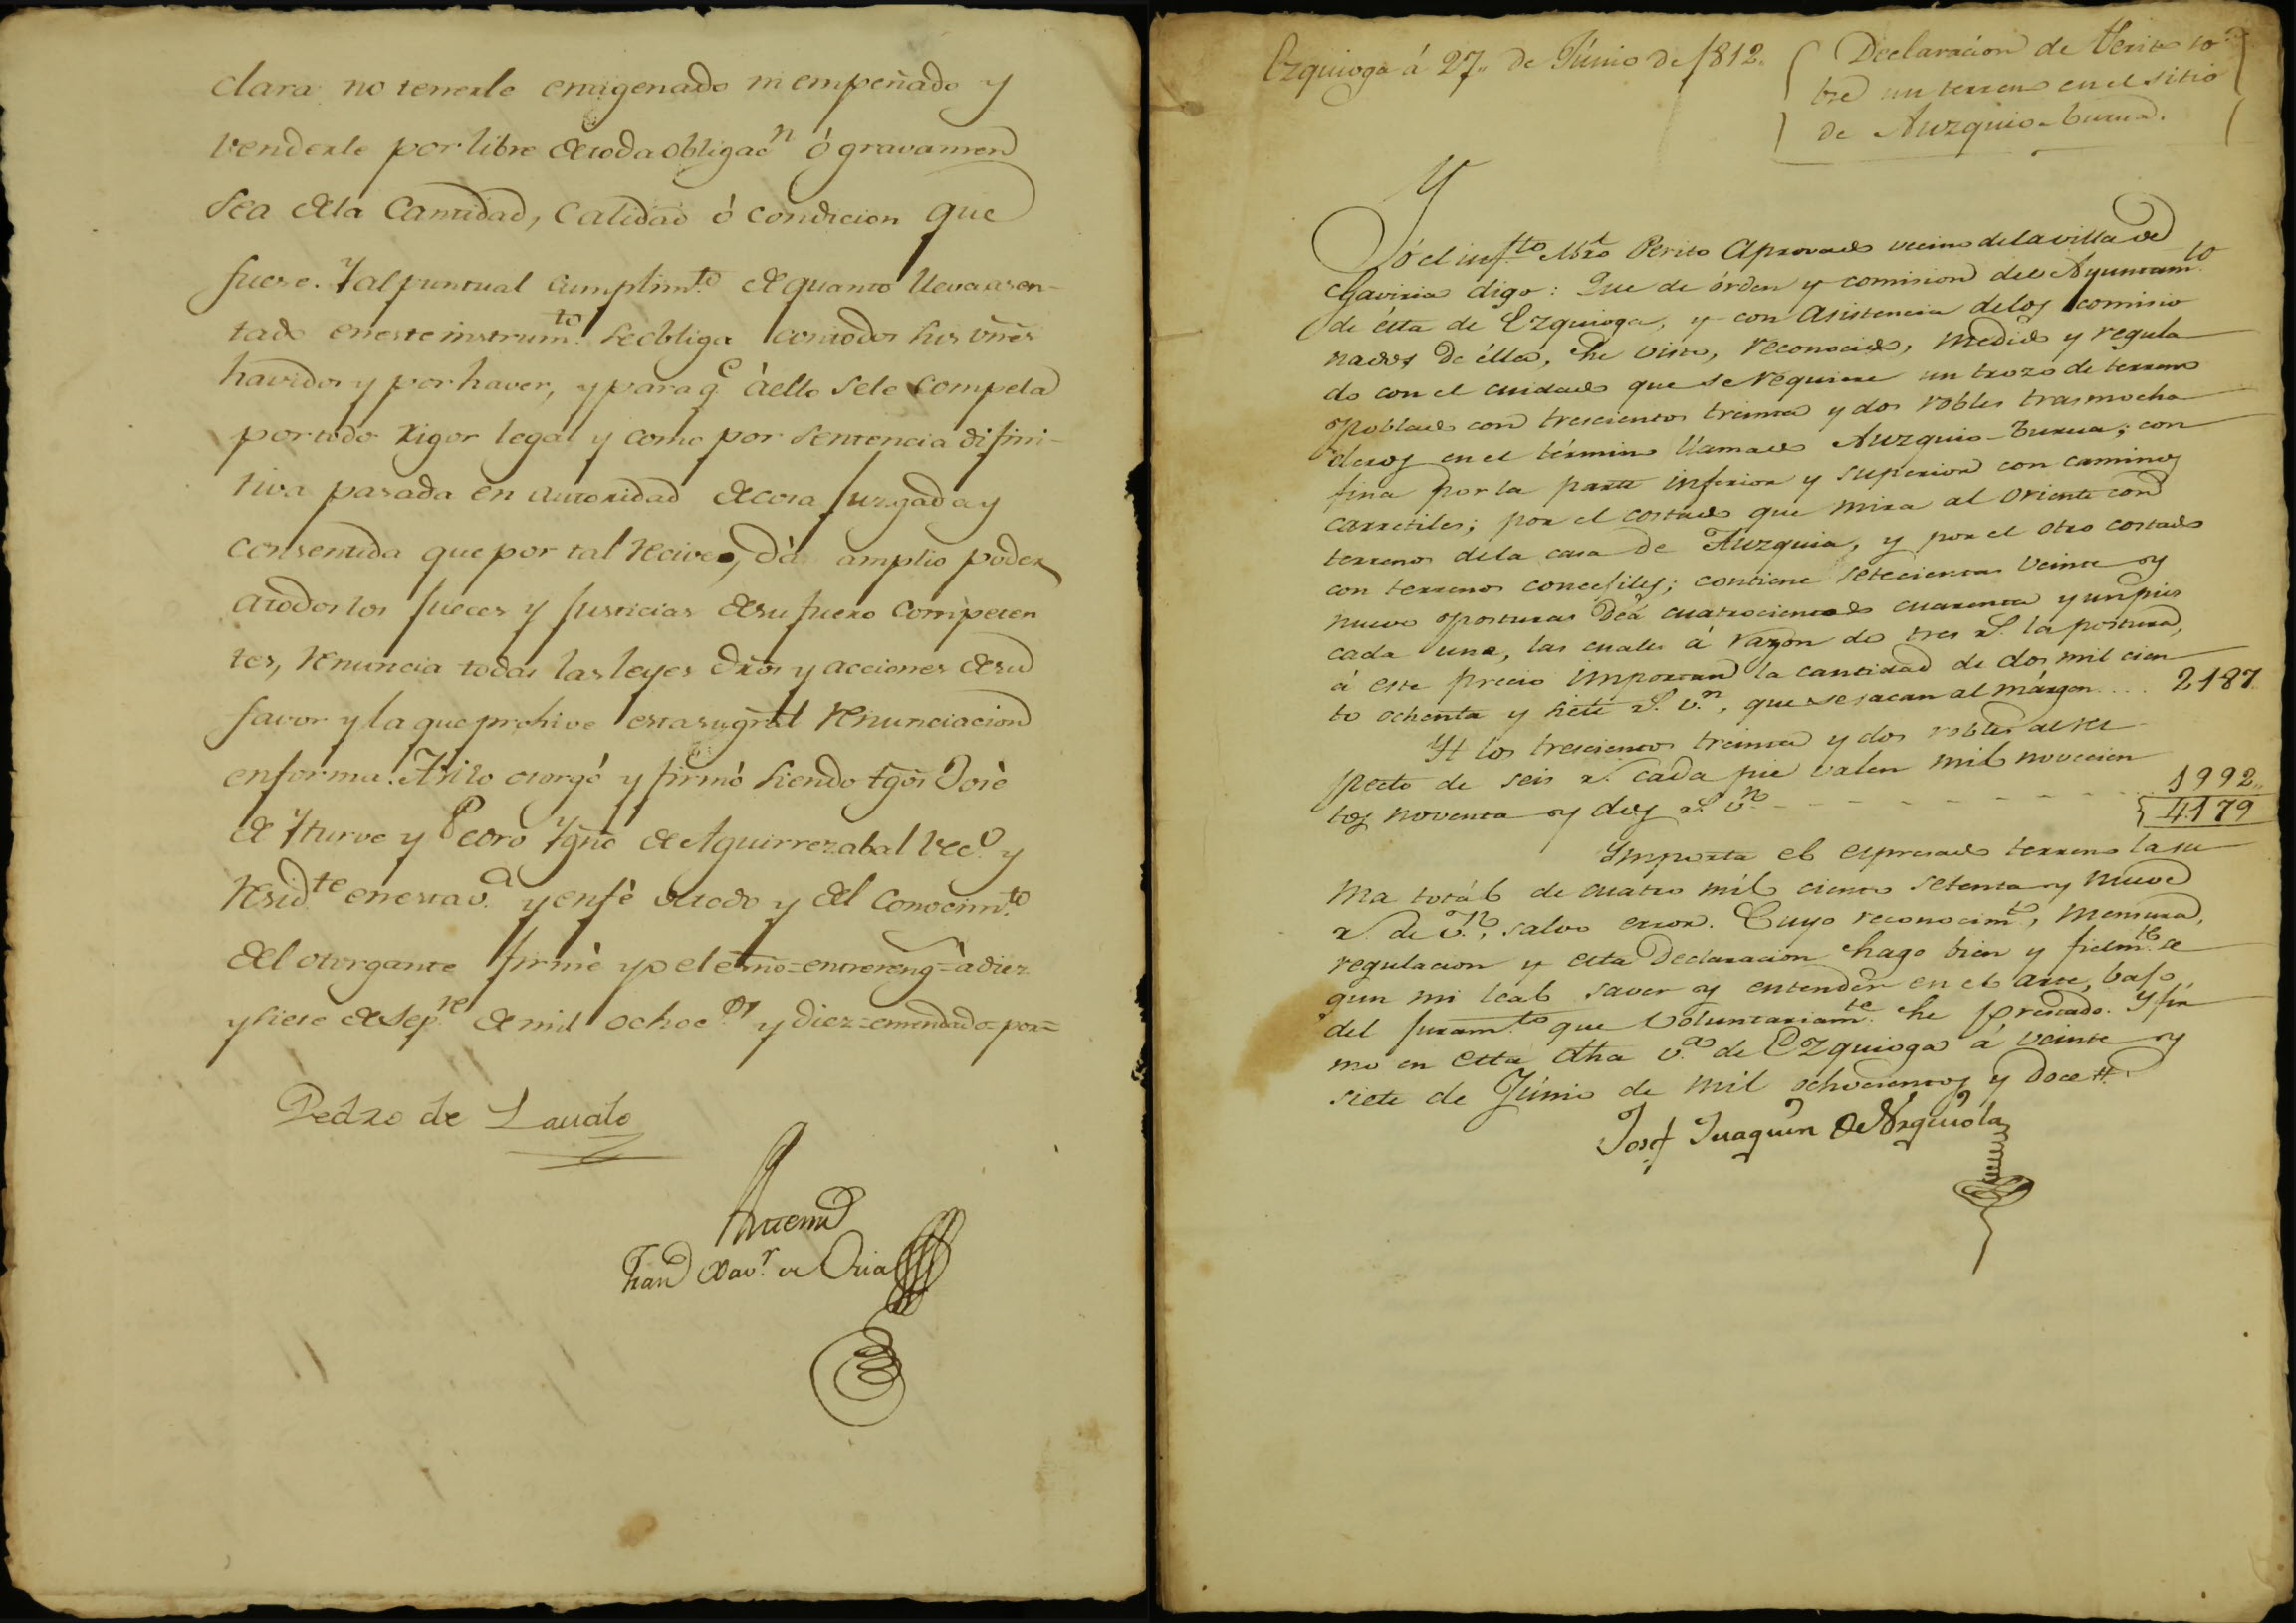 clara no tenerle enagenado ni empeñado y
venderle por libre de toda obligacn ó gravamen
sea de la Cantidad, Calidad ó condicion que
fuere. Y al puntual Cumplimto de quanto lleva asen-
tado en este instrumto se obliga con todos sus vñes
havidos y por haver, y para qe à ello se le compela
por todo rigor legal y como por sentencia difini-
tiva pasada en autoridad de cosa Juzgada y
consentida que por tal recive, dà amplio poder
a todos los Jueces y Justicias de su fuero Competen
tes, renuncia todas las leyes dr̃os y acciones de su
favor y la que prohive esta su gr̃al renunciacion
en forma. Asi lo otorgó y firmò siendo tgos̃ Josè
de Yturve y Pedro Ygño de Aguirrezabal veco y
residte en esta va y en fè de todo y del Conocimto
del otorgante firmè yo el esño=entrereng=à diez
y siete de Sepre de mil ochoc.os y diez=emendado=por=
Pedro de Lasalo
Antemi
Fran Xavr de Oria
Ezquioga á 27,, de Júnio de 1812.
Declaracion de Perito so
bre un terreno en el sitio
de Auzquio-burua.
Yó el infto Mro Perito Aprovado vecino de la villa de
Gaviria digo: Que de órden y comision del Ayuntamto
de ésta de Ezquioga, y con asistencia de los comisio
nados de élla, he visto, reconocido, medido y regula
do con el cuidado que se requiere un trozo de terreno
poblado con trescientos treinta y dos robles trasmocha
deros en el término llamado Auzquio-burua; con
fina por la parte inferior y superior con caminos
carretiles; por el costado que mira al oriente con
terrenos de la casa de Auzquia, y por el otro costado
con terrenos concejiles; contiene setecientas veinte y
nueve posturas de á cuatrocientos cuarenta y un pies
cada una, las cuales á razon de tres rs. la postura,
á este precio importan la cantidad de dos mil cien
to ochenta y siete rs. vn, que se sacan al márgen.... 2187.
Yt los trescientos treinta y dos robles al res
pecto de seis rs. cada pie valen mil novecien
tos noventa y dos rs. vn - - - - - - - 1992,,
4179
Importa el expresado terreno la su
ma totál de cuatro mil ciento setenta y nueve
rs. de vn, salvo error. Cuyo reconocimto, mensura,
regulacion y esta Declaracion hago bien y fielmte se
gun mi leal saver y entender en el arte, bajo
del Juramto que voluntariamte he prestado. Y fir
mo en esta dha va de Ezquioga á veinte y
siete de Júnio de mil ochocientos y doce.
Josef Juaquin de Arguiola